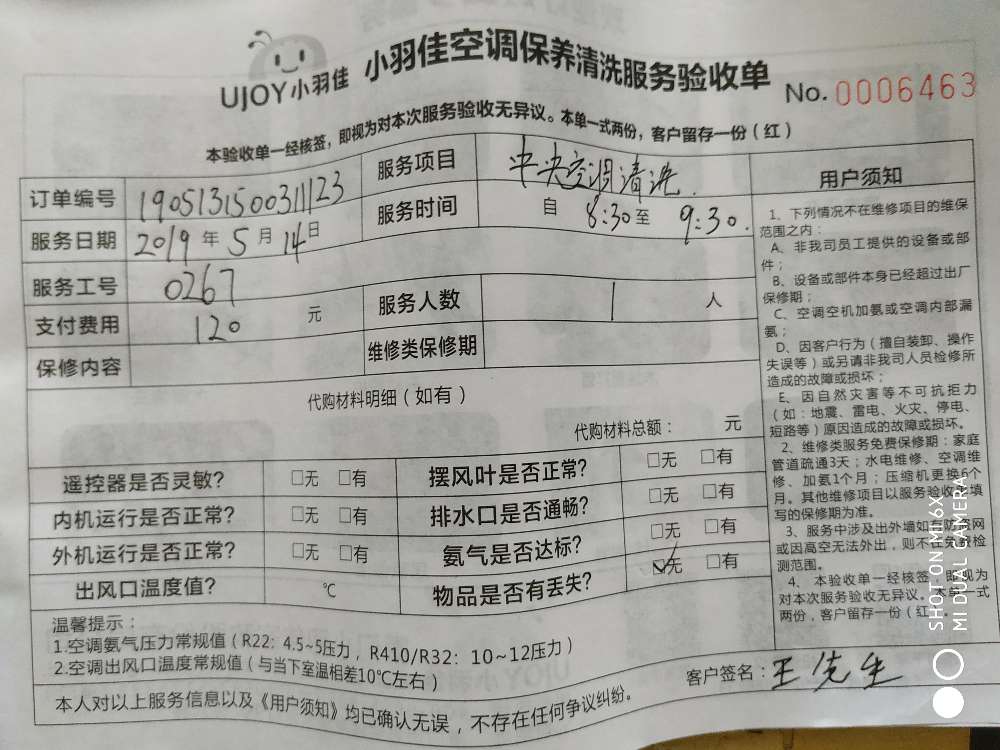 UJOY小羽佳 小羽佳空调保养清洗服务验收单 No. 0006463
本验收单一经核签，即视为对本次服务验收无异议。本单一式两份，客户留存一份（红）
订单编号 190513150031 1123 服务项目 中央空调清洗
服务日期 2019年5月14日 服务时间 自 8:30至 9:30.
服务工号 0267
支付费用 120 元 服务人数 1 人
保修内容 维修类保修期
代购材料明细（如有）
代购材料总额： 元
遥控器是否灵敏？ □无 □有 摆风叶是否正常？ □无 □有
内机运行是否正常？ □无 □有 排水口是否通畅？ □无 □有
外机运行是否正常？ □无 □有 氨气是否达标？ □无 □有
出风口温度值？ ℃ 物品是否有丢失？ ☑无 □有
温馨提示：
1.空调氨气压力常规值（R22：4.5~5压力，R410/R32：10~12压力）
2.空调出风口温度常规值（与当下室温相差10℃左右）
本人对以上服务信息以及《用户须知》均已确认无误，不存在任何争议纠纷。
客户签名：王先生
用户须知
1、下列情况不在维修项目的维保
范围之内：
A、非我司员工提供的设备或部
件；
B、设备或部件本身已经超过出厂
保修期；
C、空调空机加氨或空调内部漏
氨；
D、因客户行为（擅自装卸、操作
失误等）或另请非我司人员检修所
造成的故障或损坏；
E、因自然灾害等不可抗拒力
（如：地震、雷电、火灾、停电、
短路等）原因造成的故障或损坏。
2、维修类服务免费保修期：家庭
管道疏通3天；水电维修、空调维
修、加氨1个月；压缩机更换6个
月。其他维修项目以服务验收单填
写的保修期为准。
3、服务中涉及出外墙如有防盗网
或因高空无法外出，则不在免费检
测范围。
4、本验收单一经核签，即视为
对本次服务验收无异议。本单一式
两份，客户留存一份（红）。
SHOT ON MI 6X
MI DUAL CAMERA